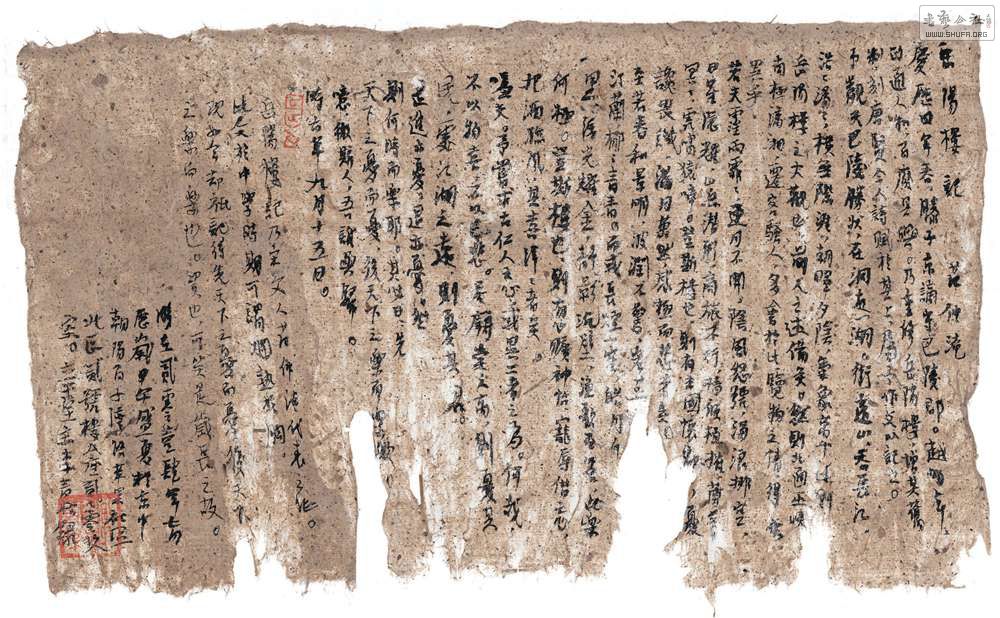 岳陽樓記 范仲淹
慶歷四年春滕子京謫守巴陵郡。越明年、
政通人和百廢具興。乃重修岳陽樓增其舊
制刻唐賢今人詩賦於其上屬予作文以記之。
予觀夫巴陵勝狀在洞庭一湖。銜遠山、吞長江
浩浩湯湯橫無際涯朝暉夕陰氣象萬千此則
岳陽樓之大觀也。前人之述備矣。然則北通巫峽
南極瀟湘遷客騷人多會於此覽物之情得無
異乎。
若夫霪雨霏霏連月不開陰風怒號濁浪排空
日星隱耀山岳潛形商旅不行檣傾楫摧薄暮
冥冥虎嘯猿啼。登斯樓也則有去國懷鄉憂
讒畏譏滿目蕭然感極而悲者矣。
至若春和景明波瀾不驚
汀蘭郁郁青青。而或長煙一空皓月千
里浮光耀金靜影沉璧漁歌互答此樂
何極。登斯樓也則有心曠神怡寵辱偕忘
把酒臨風其喜洋洋者矣。
嗟夫予嘗求古仁人之心或異二者之為。何哉
不以物喜不以己悲。居廟堂之高則憂其
民處江湖之遠則憂其君。
是進亦憂退亦憂。然
則何時而樂耶。其必曰、先
天下之憂而憂後天下之樂而樂歟
噫微斯人、吾誰與歸。
時六年九月十五日。
岳陽樓記乃宋文人范仲淹代表之作。
此文於中學時期可謂爛熟於胸
現如今却祇記得先天下之憂而憂後天下
之樂而樂也。可笑是歲長之故。
時在貳零壹肆年七月
歷歲甲午盛夏於京中
朝陽百子灣路
北區貳號樓
書法公社
WWW.SHUFA.ORG